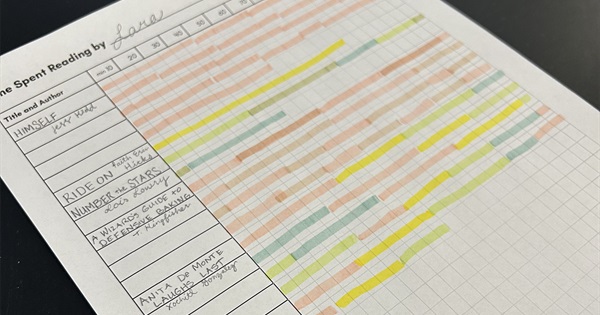 ne Spent Reading by Sara
min 10 20 30 40 50 60 70
Title and Author
HIMSELF
Jess Kidd
RIDE ON Faith Erin
Hicks
NUMBER the STARS
Lois Lowry
A WIZARD'S GUIDE TO
DEFENSIVE BAKING
T. Kingfisher
ANITA DE MONTE
LAUGHS LAST
Xochitl Gonzalez